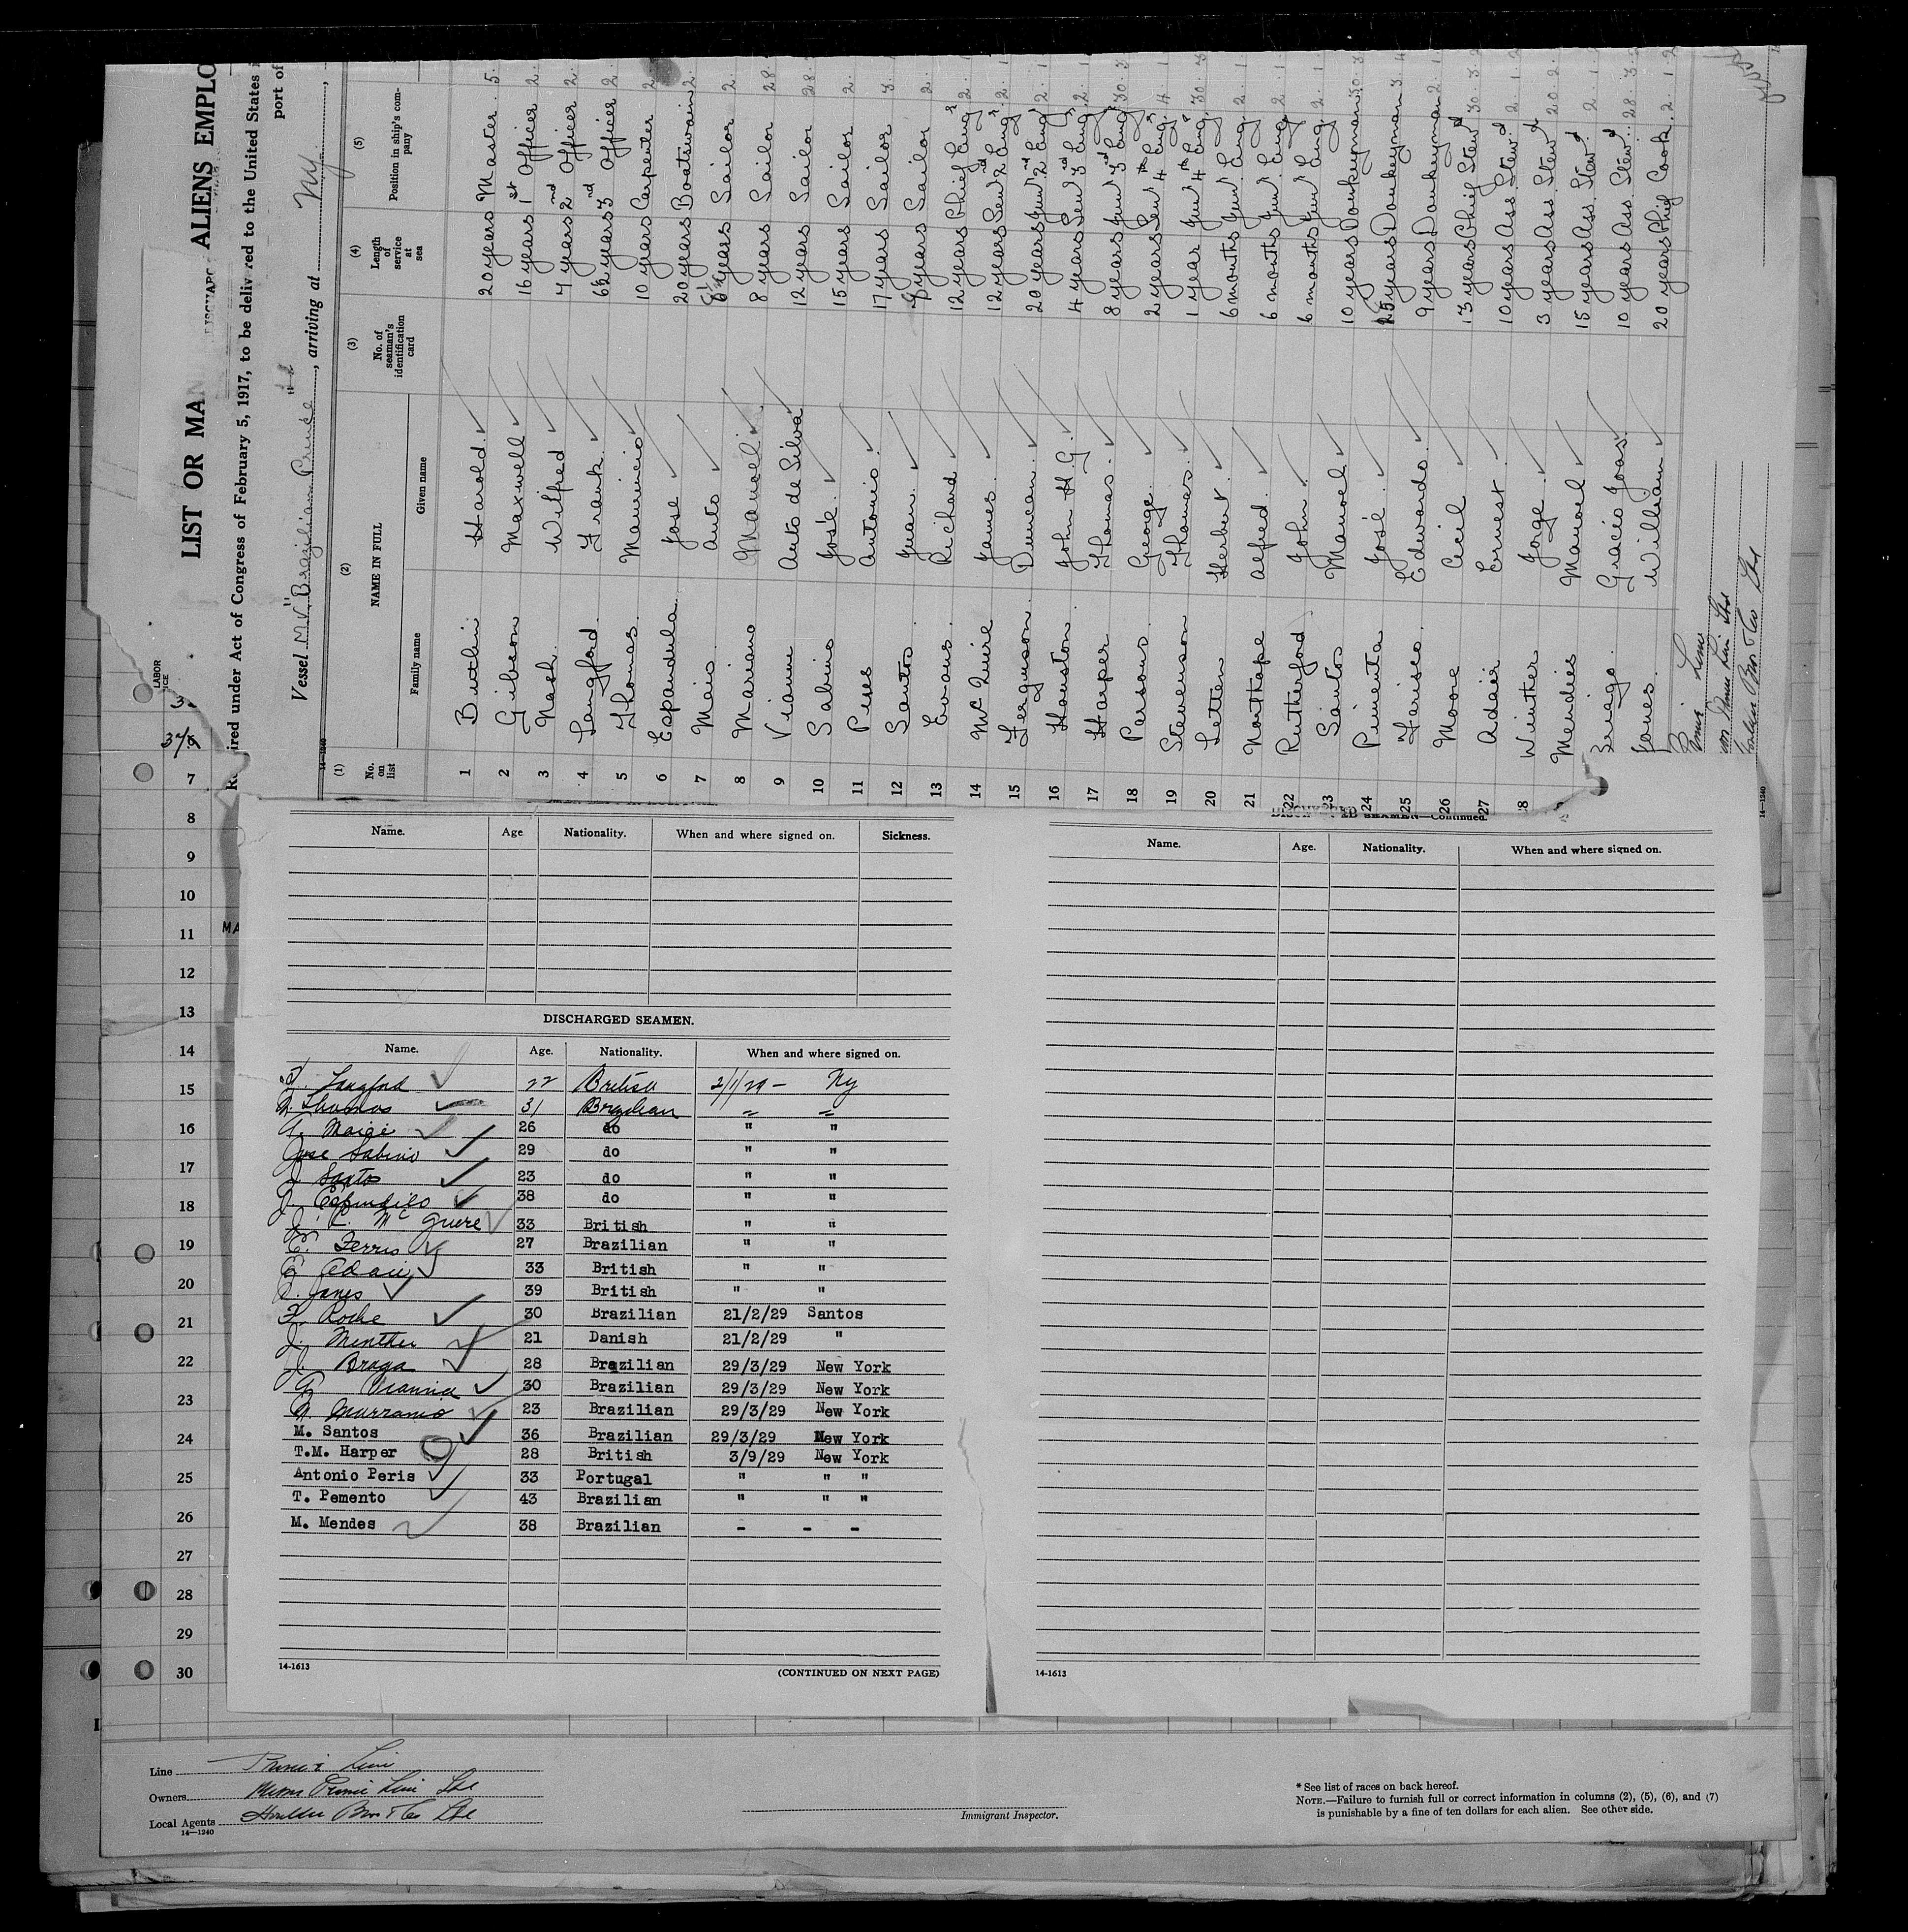 LIST OR MAN ALIENS EMPLO
ired under Act of Congress of February 5, 1917, to be delivered to the United States i
port of
Vessel M.V. "Brazilian Prince", arriving at NY.
(1) (2) (3) (4) (5)
No. on list NAME IN FULL No. of seaman's identification card Length of service at sea Position in ship's company
Family name Given name
1 Harold 20 years Master 5.
2 Gibson Maxwell 16 years 1st Officer 2.
3 Nash Wilfred 4 years 2nd Officer 2
4 Langford Frank 6½ years 3rd Officer 2.
5 Thomas Mauricio 10 years Carpenter 2
6 Espandula Jose 20 years Boatswain 2.
7 Maio Auto years Sailor 2.
8 Mariano Manoel 8 years Sailor 28.
9 Vianni Auto de Silva 12 years Sailor 28.
10 Sabino José 15 years Sailor 2.
11 Pires Antonio 17 years Sailor 3.
12 Santos Juan years Sailor 2.
13 Evans Richard 12 years Chief Eng'r 2.
14 McQuire James 12 years Sen' 2nd Eng' 2.
15 Ferguson Duncan 20 years Jun' 2nd Eng' 2.
16 Houston John H.G. 4 years Sen' 3rd Eng' 2.
17 Harper Thomas 8 years Jun' 3rd Eng' 30. 3
18 Parsons George 2 years Sen' 4th Eng' 4.
19 Stevenson Thomas 1 year Jun' 4th Eng' 30. 3
20 Letten Herbert 6 months Jun' Eng 2.
21 Northope Alfred 6 months Jun' Eng 2
22 Rutherford John 6 months Jun' Eng 2.
23 Santos Manoel 10 years Donkeyman 30 3
24 Pimenta José years Donkeyman 3 4
25 Ferisso Edwardo 9 years Donkeyman 2. 1
26 Moore Cecil 13 years Chief Stewd 30. 3
27 Adair Ernest 10 years Ass Stewd 2. 1
28 Winther Jorge 3 years Ass Stewd 20 2.
Mendies Manoel 15 years Ass Stewd 2 1.
Joas 10 years Ass Stewd 28. 3.
Jones William 20 years Chief Cook 2. 1.
14—1240
LABOR
7
8
9
10
11 MA
12
13
14
15
16
17
18
19
20
21
22
23
24
25
26
27
28
29
30
Name. Age Nationality. When and where signed on. Sickness.
DISCHARGED SEAMEN.
Name. Age. Nationality. When and where signed on.
Langford 22 British 2/1/29 - NY
Thomas 31 Brazilian " "
26 do " "
Jose Sabino 29 do " "
J. Santos 23 do " "
38 do " "
Mc Guere 33 British " "
E. Ferris 27 Brazilian " "
E. Adair 33 British " "
Jones 39 British " "
30 Brazilian 21/2/29 Santos
J. 21 Danish 21/2/29 "
J. Braga 28 Brazilian 29/3/29 New York
A. Vianna 30 Brazilian 29/3/29 New York
M. 23 Brazilian 29/3/29 New York
M. Santos 36 Brazilian 29/3/29 New York
T.M. Harper 28 British 3/9/29 New York
Antonio Peris 33 Portugal " " "
T. Pemento 43 Brazilian " " "
M. Mendes 38 Brazilian - - -
14-1613 (CONTINUED ON NEXT PAGE)
SEAMEN—Continued.
Name. Age. Nationality. When and where signed on.
14-1613
14—1240
Line Prince Line
Owners Prince Line Ltd
Local Agents Houlder Bros & Co Ltd
14—1240
Immigrant Inspector.
* See list of races on back hereof.
NOTE.—Failure to furnish full or correct information in columns (2), (5), (6), and (7)
is punishable by a fine of ten dollars for each alien. See other side.